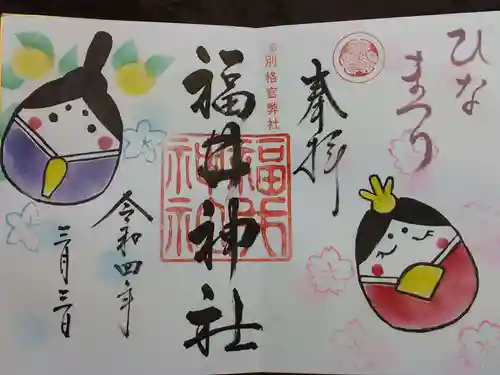 ひな
まつり
奉拝
旧別格官幣社
福井神社
福井
神社
令和四年
三月三日